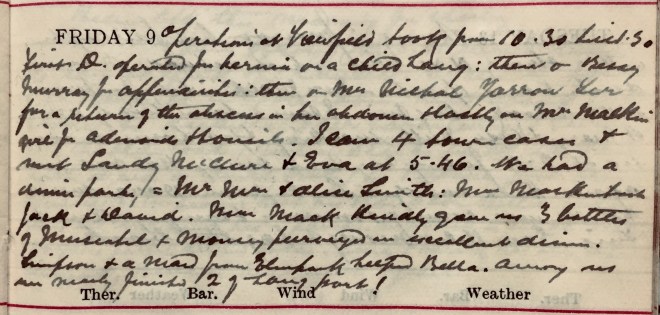 FRIDAY 9 Operations at Fairfield took from 10.30 till 1.30
First D. operated for hernia on a child Lang: then on Bessy
Murray for appendicitis: then on Mrs Nichol Yarrow
for a return of the abscess in her abdomen & lastly on Mr
for adenoids & tonsils. I saw 4 town cases &
met Sandy McClure & Eva at 5-46. We had a
dinner party = Mr Mrs & Alice Smith: Mrs Mackintosh
Jack & David. Mrs Mack kindly gave us 3 bottles
of Muscatel & Money purveyed an excellent dinner.
Simpson & a maid from Elmpark helped Bella. Among us
we nearly finished 2 of Lang port!
Ther. Bar. Wind Weather